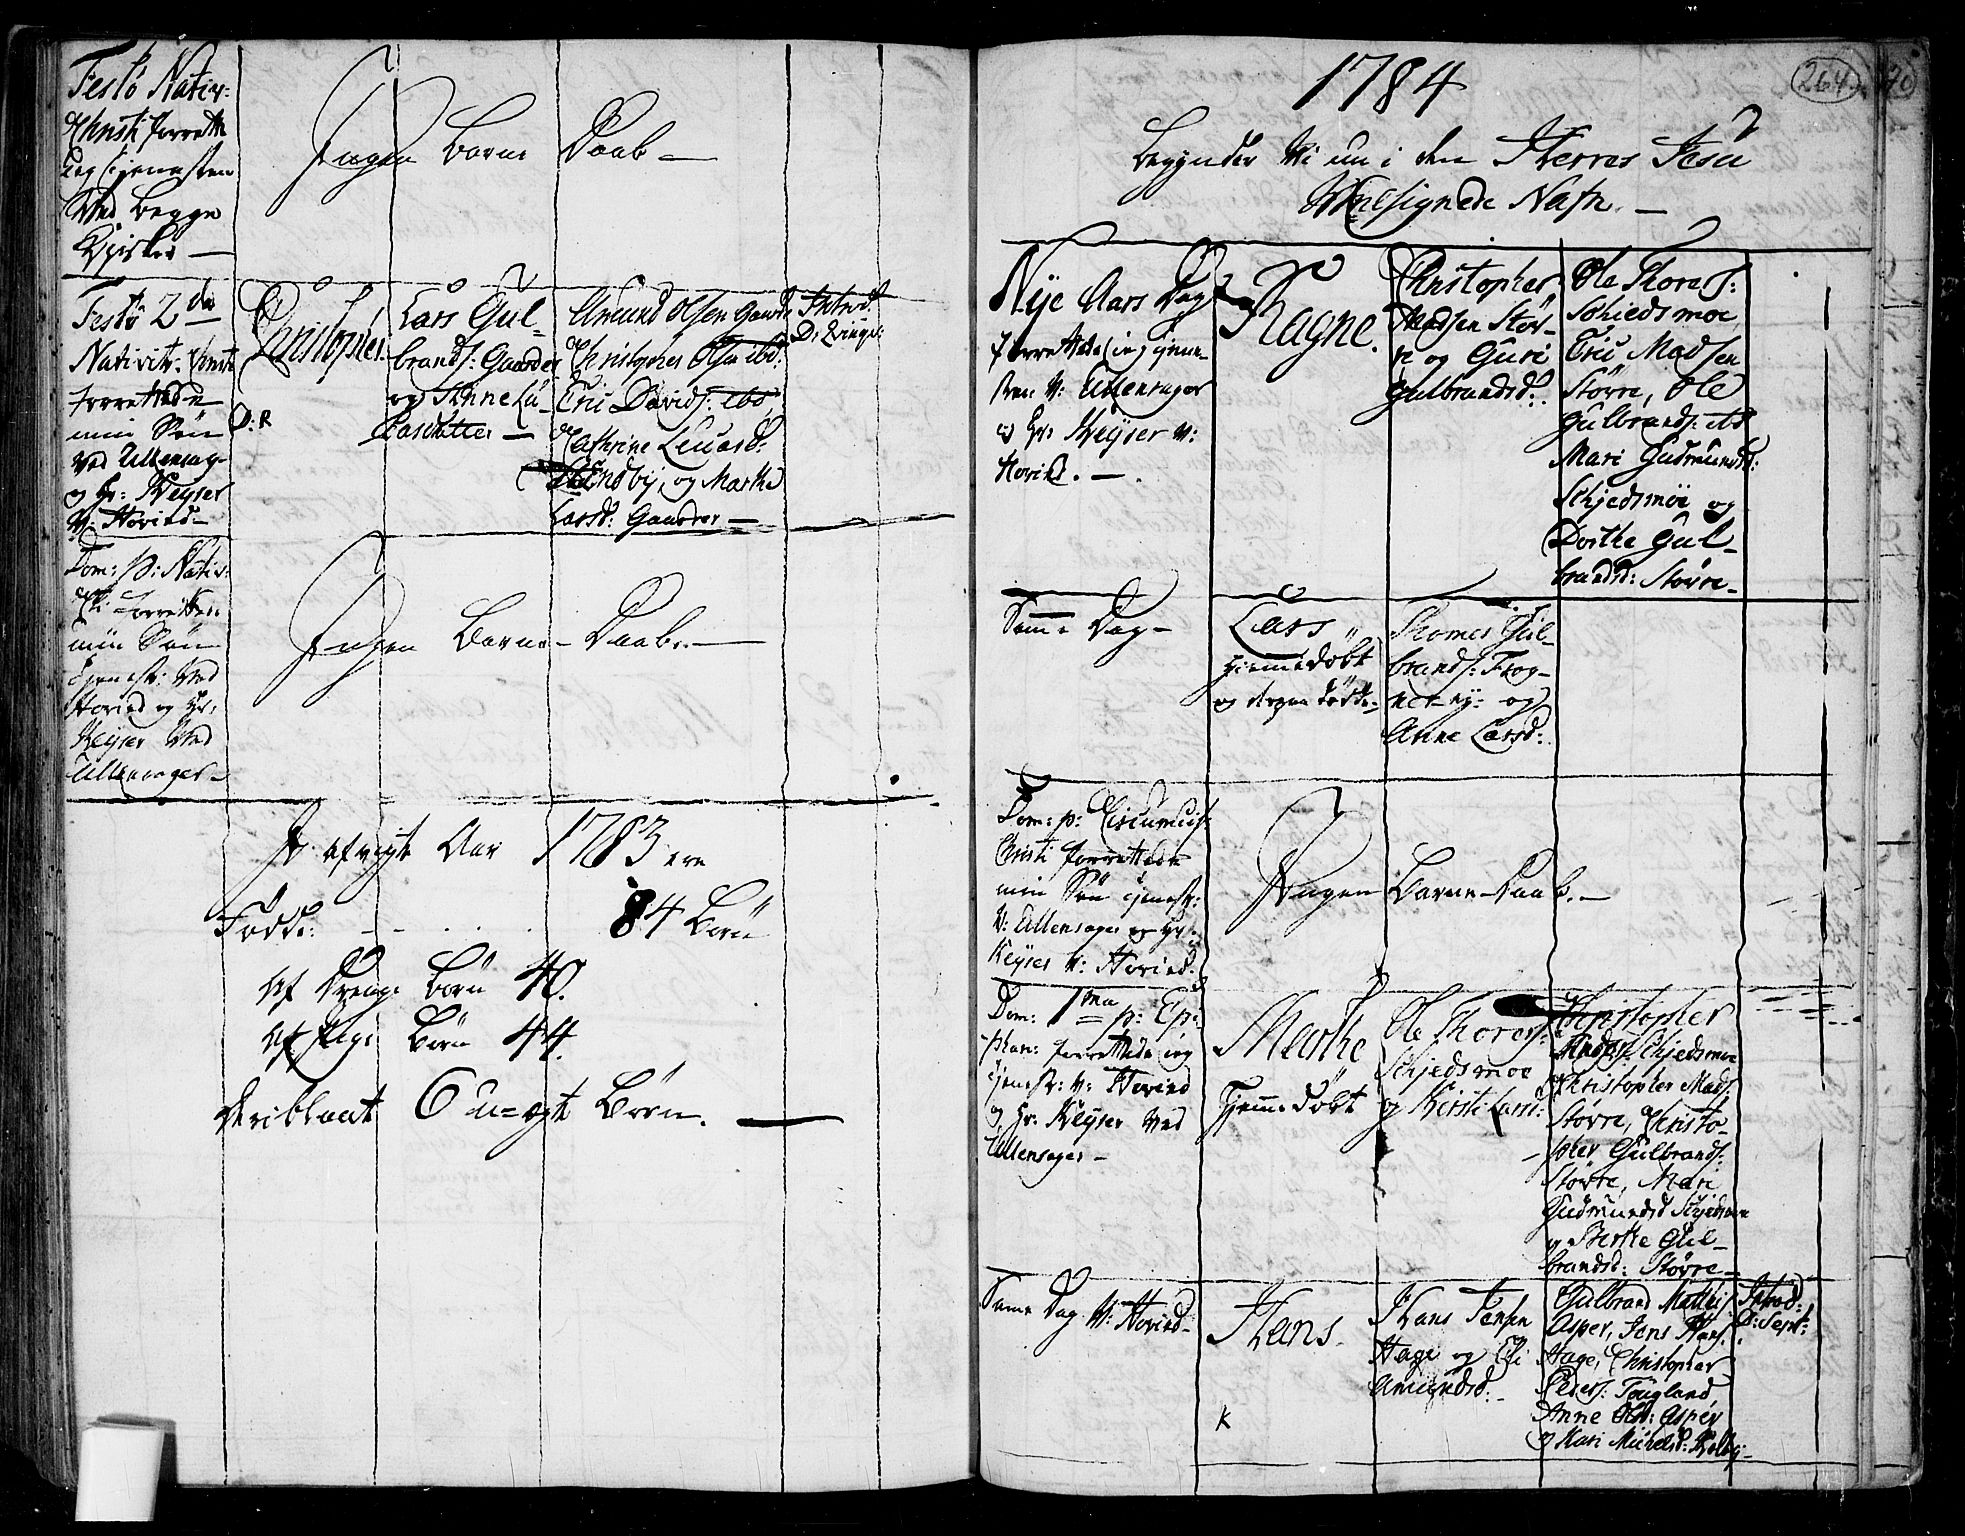 Festo Nativ:
Christi forrett:
Jeg tjenesten
Ved begge
Kirker —
Ingen Barne Daab —
Festo 2da
Nativit: Christi
forrettede
min Søn
Ved Ullensag-
og Hr: Keyser
V: Hovind —
Christopher.
D: R
Lars Gul-
brands: Gaarder
og Anne Lu-
casdatter —
Amund Olsen Gaarder
Christopher Olsen ibd:
Eric Davids: ibd,
Cathrine Lucasd:
Sundby, og Marthe
Larsd: Gaarder —
Introd:
D:
Dom: p: Nativ:
Chi forrettede
min Søn
Tjenest: Ved
Hovind og Hr:
Keyser Ved
Ullensager —
Ingen Barne-Daab. —
I afvigte Aar 1783 ere
Fødde: - - . . . 84 Børn
Af Drenge Børn 40.
Af Pige Børn 44.
Deriblant 6 u=ægte Børn. —
264
1784
Begynder Vi nu i den Herres Jesu
Velsignede Nafn. —
Nye Aars Dag
forrettede jeg tjene-
sten V: Ullensager
og Hr: Keyser V:
Hovind. —
Ragne.
Christopher
Madsen Stør-
re og Guri
Gulbrandsd:
Ole Thores:
Schiedsmoe
Eric Madsen
Større, Ole
Gulbrands: ibd
Mari Gudmundsd:
Schjedsmoe og
Dorthe Gul-
brandsd: Større —
Samme Dag —
Lars
hjemmedøbt
og døde
Thomes Gul-
brands: Frog-
ner-ey: og
Anne Larsd:
Dom: p: Circumcis:
Christi forrettede
min Søn tjenest:
V: Ullensager og Hr:
Keyser V: Hovind.
Ingen Barne-Daab. —
Dom: 1ma p: Epi-
phan: forrettede jeg
tjenest: V: Hovind
og Hr: Keyser Ved
Ullensager —
Marthe
Hjemmedøbt
Ole Thores:
Schjedsmoe
og Kirsti Larsd:
Christopher
Anders: Schjedsmoe
Christopher Mads:
Større, Christo-
pher Gulbrands:
Større, Mari
Gudmundsd Schjedsmoe
og Berthe Gul-
brandsd: Større —
Samme Dag V: Hovind —
Hans —
K
Hans Jensen
Hage og Eli
Amundsd: —
Gulbrand Mathis:
Asper, Jens Hans:
Hage, Christopher
Peders: Fugland
Anne Olsd: Asper
og Kari Michelsd:
Introd:
D: Sept: